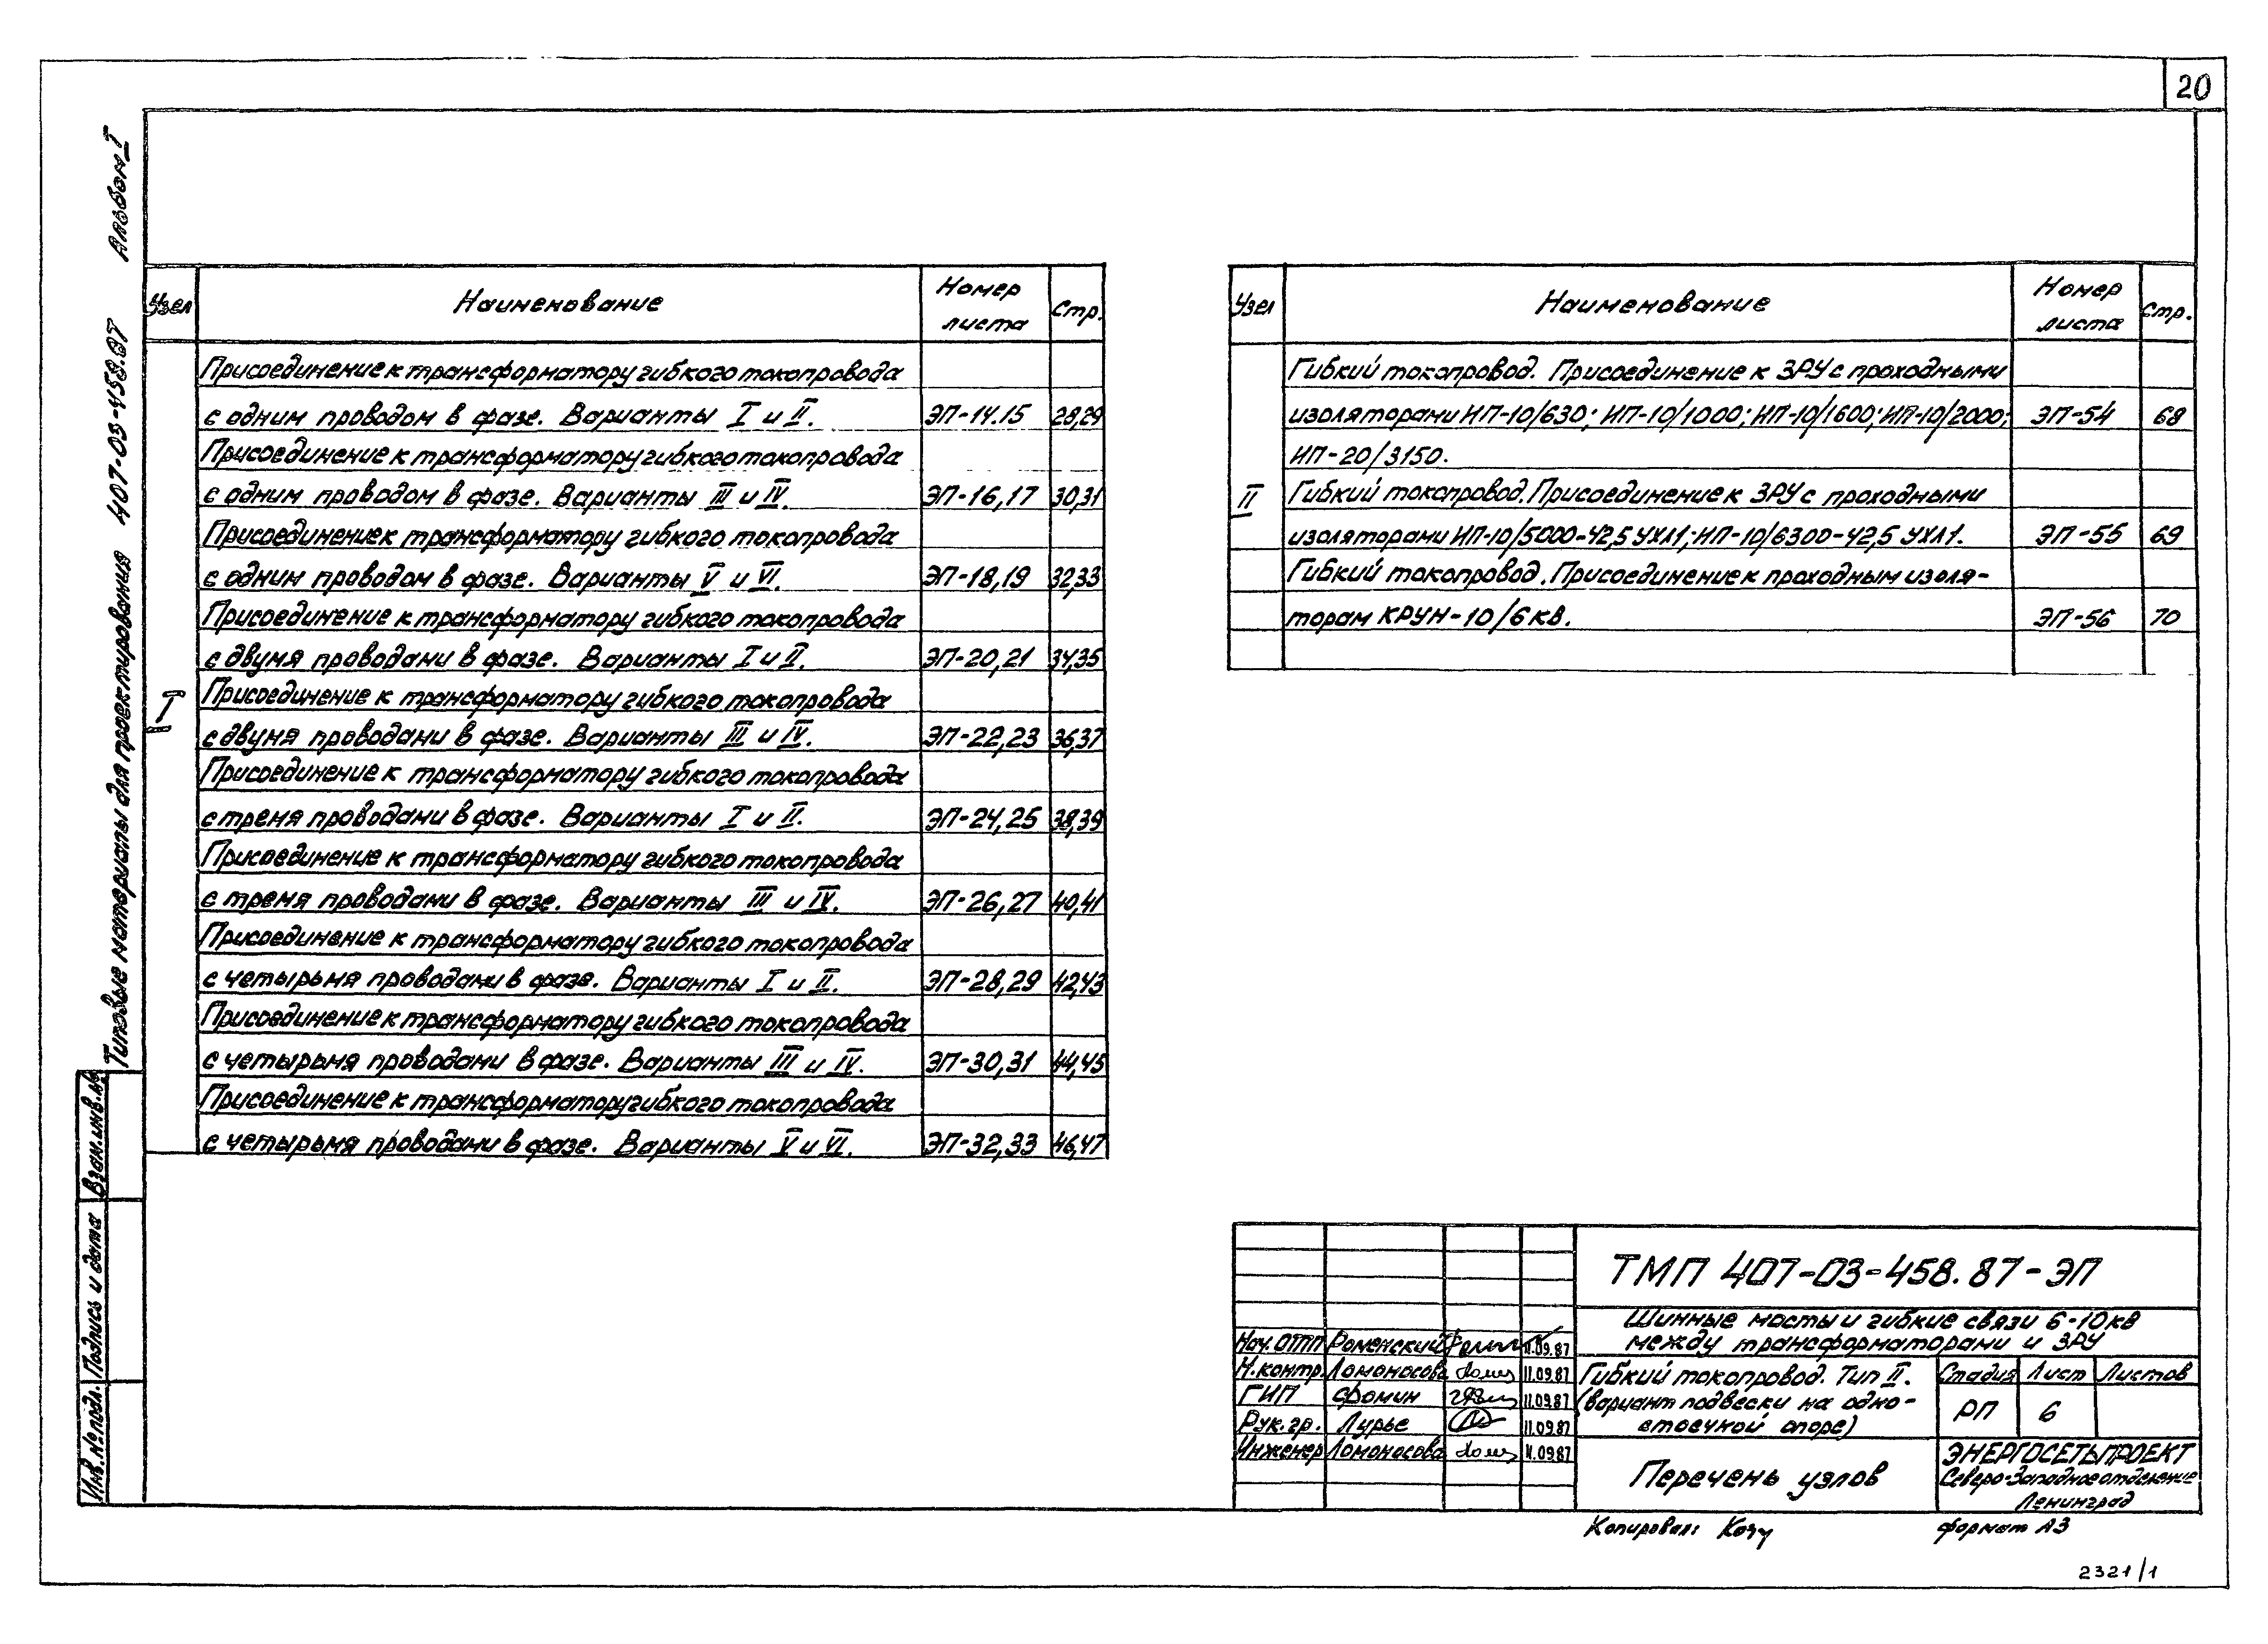 20
Типовые материалы для проектирования 407-03-458.87 Альбом I
Узел Наименование Номер листа Стр.
Присоединение к трансформатору гибкого токопровода
с одним проводом в фазе. Варианты I и II. ЭП-14.15 28,29
Присоединение к трансформатору гибкого токопровода
с одним проводом в фазе. Варианты III и IV. ЭП-16,17 30,31
Присоединение к трансформатору гибкого токопровода
с одним проводом в фазе. Варианты V и VI. ЭП-18,19 32,33
Присоединение к трансформатору гибкого токопровода
с двумя проводами в фазе. Варианты I и II. ЭП-20,21 34,35
I Присоединение к трансформатору гибкого токопровода
с двумя проводами в фазе. Варианты III и IV. ЭП-22,23 36,37
Присоединение к трансформатору гибкого токопровода
с тремя проводами в фазе. Варианты I и II. ЭП-24,25 38,39
Присоединение к трансформатору гибкого токопровода
с тремя проводами в фазе. Варианты III и IV. ЭП-26,27 40,41
Присоединение к трансформатору гибкого токопровода
с четырьмя проводами в фазе. Варианты I и II. ЭП-28,29 42,43
Присоединение к трансформатору гибкого токопровода
с четырьмя проводами в фазе. Варианты III и IV. ЭП-30,31 44,45
Присоединение к трансформатору гибкого токопровода
с четырьмя проводами в фазе. Варианты V и VI. ЭП-32,33 46,47
Узел Наименование Номер листа Стр.
Гибкий токопровод. Присоединение к ЗРУ с проходными
изоляторами ИП-10/630; ИП-10/1000; ИП-10/1600; ИП-10/2000; ЭП-54 68
ИП-20/3150.
II Гибкий токопровод. Присоединение к ЗРУ с проходными
изоляторами ИП-10/5000-42,5 УХЛ1; ИП-10/6300-42,5 УХЛ1. ЭП-55 69
Гибкий токопровод. Присоединение к проходным изоля-
торам КРУН-10/6 кВ. ЭП-56 70
ТМП 407-03-458.87-ЭП
Шинные мосты и гибкие связи 6-10 кВ
между трансформаторами и ЗРУ
Нач. ОТП Роменский 11.09.87
Н.контр. Ломоносова 11.09.87
ГИП Фомин 11.09.87
Рук. гр. Лурье 11.09.87
Инженер Ломоносова 11.09.87
Гибкий токопровод. Тип II.
(вариант подвески на одно-
стоечной опоре)
Стадия Лист Листов
РП 6
Перечень узлов
ЭНЕРГОСЕТЬПРОЕКТ
Северо-Западное отделение
Ленинград
Копировал: формат А3
2321/1
Инв.№ подл. Подпись и дата Взам.инв.№